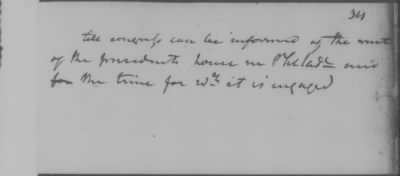 341
till congress can be informed of the rent
of the presidents house in Philadª and
for the time for wch it is engaged